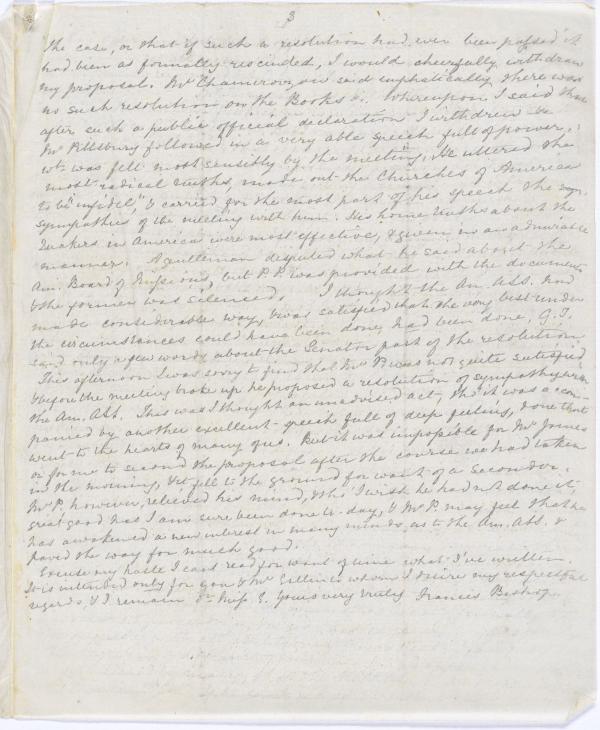 3
the case, or that if such a resolution had ever been passed it
had been as formally rescinded, I would cheerfully withdraw
my proposal. Mr Chamerovzow said emphatically there was
no such resolution on the Books &c. Whereupon I said that
after such a public official declaration I withdrew &c
Mr Pillsbury followed in a very able speech full of power,
wh. was felt most sensibly by the meeting. He uttered the
most radical truths, made out the Churches of America
to be "infidel," & carried for the most part of his speech the
sympathies of the meeting with him. His home truths about the
Quakers in America were most effective, & given in an admirable
manner. A gentleman disputed what he said about the
Am. Board of Missions, but P.P. was provided with the documents
& the former was silenced. I thought the Am. A.S.S. had
made considerable way, & was satisfied that the very best under
the circumstances could have been done, had been done, G.T.
said only a few words about the Senator part of the resolution.
This afternoon I was sorry to find that Mr P was not quite satisfied
& before the meeting broke up he proposed a resolution of sympathy with
the Am. A.S.S. This was I thought an unadvised act, tho' it was accom-
panied by another excellent speech full of deep feeling, & one that
went to the hearts of many of us. But it was impossible for Mr James
or for me to second the proposal after the course we had taken
in the morning, & it fell to the ground for want of a seconder.
Mr P, however, relieved his mind, & tho' I wish he hadn't done it,
great good has I am sure been done to-day, & Mr P. may feel that he
has awakened a new interest in many minds as to the Am. A.S.S. &
paved the way for much good.
Excuse my haste I cant read for want of time what I've written.
It is intended only for you & Mr to whom I desire my respectful
regards, & I remain Dr Miss E. Yours very truly Francis Bishop.